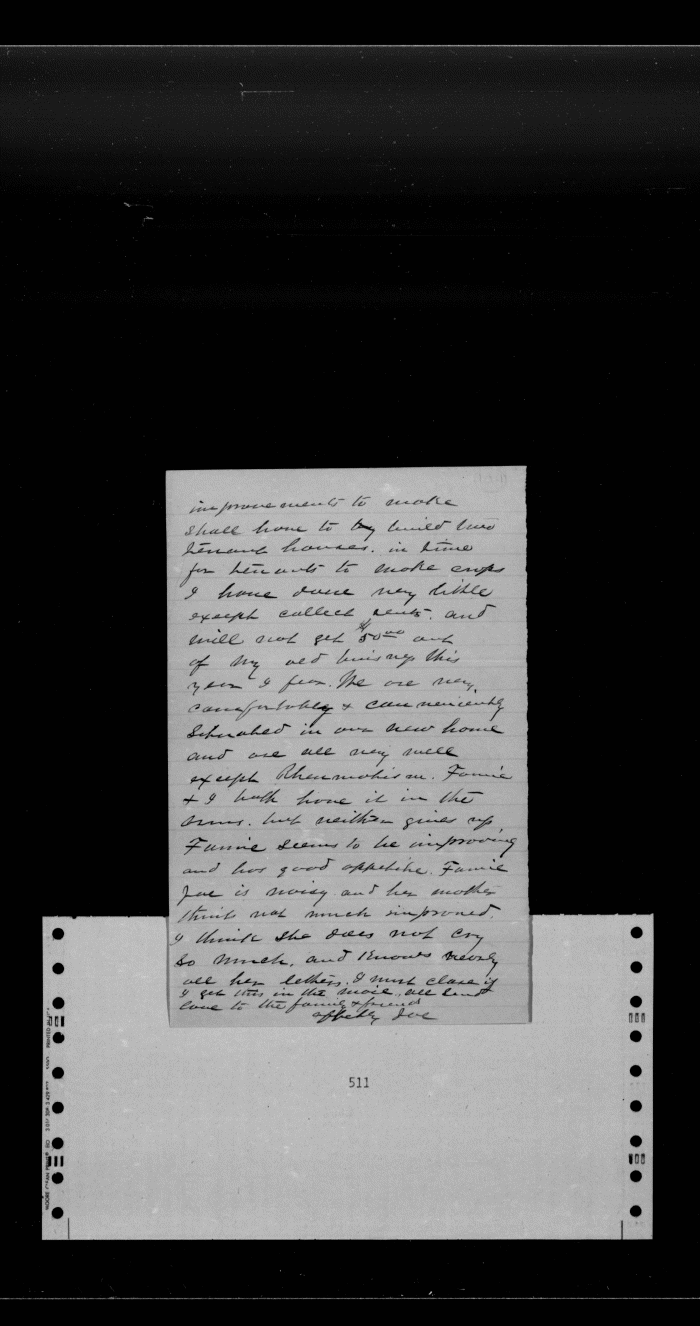 improvements to make
shall have to build two
tenant houses. in time
for tenants to make crops
I have done very little
except collect rents. and
will not get $50.00 out
of my old business this
year I fear. We are very
comfortably & conveniently
situated in our new home
and are all very well
except Rheumatism. Fannie
& I both have it in the
arms. but neither gives up
Fannie seems to be improving
and has good appetite. Fannie
Joe is noisy and her mother
thinks not much improved.
I think she does not cry
so much, and Knows nearly
all her letters. I must close if
I get this in the mail. all send
love to the family & friends
affctly Joe
511